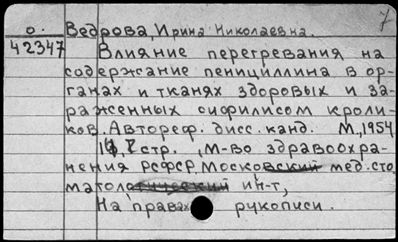 7
о. Ведрова, Ирина Николаевна.
42347 Влияние перегревания на
содержание пенициллина в ор-
ганах и тканях здоровых и за-
раженных сифилисом кроли-
ков. Автореф. дисс. канд. М., 1954
стр., М-во здравоохра-
нения РСФСР, Московский мед. сто
матологический ин-т,
На правах рукописи.